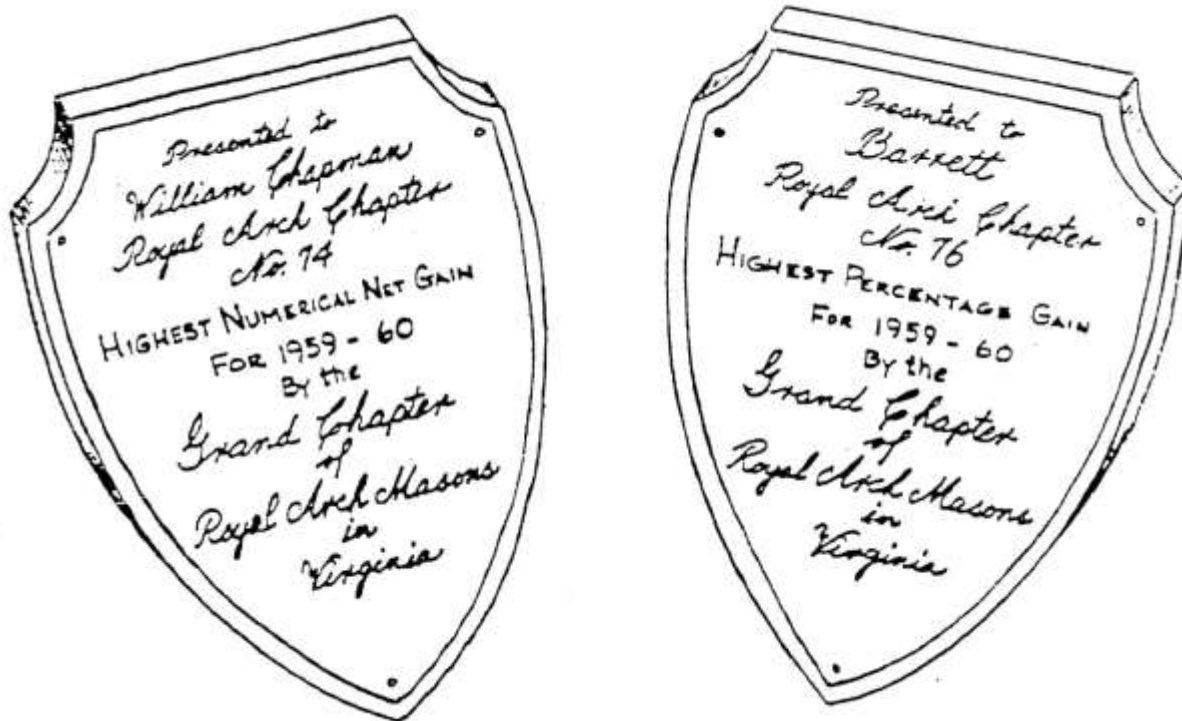 Presented to
William Chapman
Royal Arch Chapter
No. 74
HIGHEST NUMERICAL NET GAIN
FOR 1959 - 60
By the
Grand Chapter
of
Royal Arch Masons
in
Virginia
Presented to
Barrett
Royal Arch Chapter
No. 76
HIGHEST PERCENTAGE GAIN
FOR 1959 - 60
By the
Grand Chapter
of
Royal Arch Masons
in
Virginia